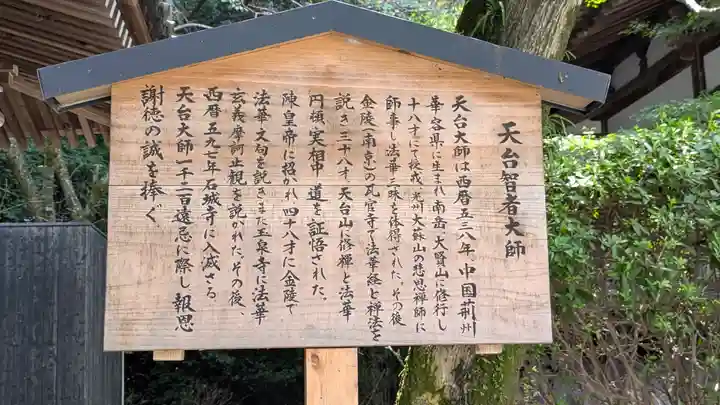 天台智者大師
天台大師は西暦五三八年、中国荊州
華容県に生まれ南岳、大賢山に修行し
十八才にて出家受戒、光州大蘇山の慧思禅師に
師事し法華三昧を体得された。その後
金陵(南京)の瓦官寺で法華経と禅法を
説き三十八才、天台山に修禅と法華
円頓、実相中道を証悟された。
陳皇帝に招かれ四十八才に金陵で
法華文句を説きまた玉泉寺に法華
玄義摩訶止観を説かれた。その後、
西暦五九七年石城寺に入滅さる。
天台大師一千四百遠忌に際し報恩
謝徳の誠を捧ぐ